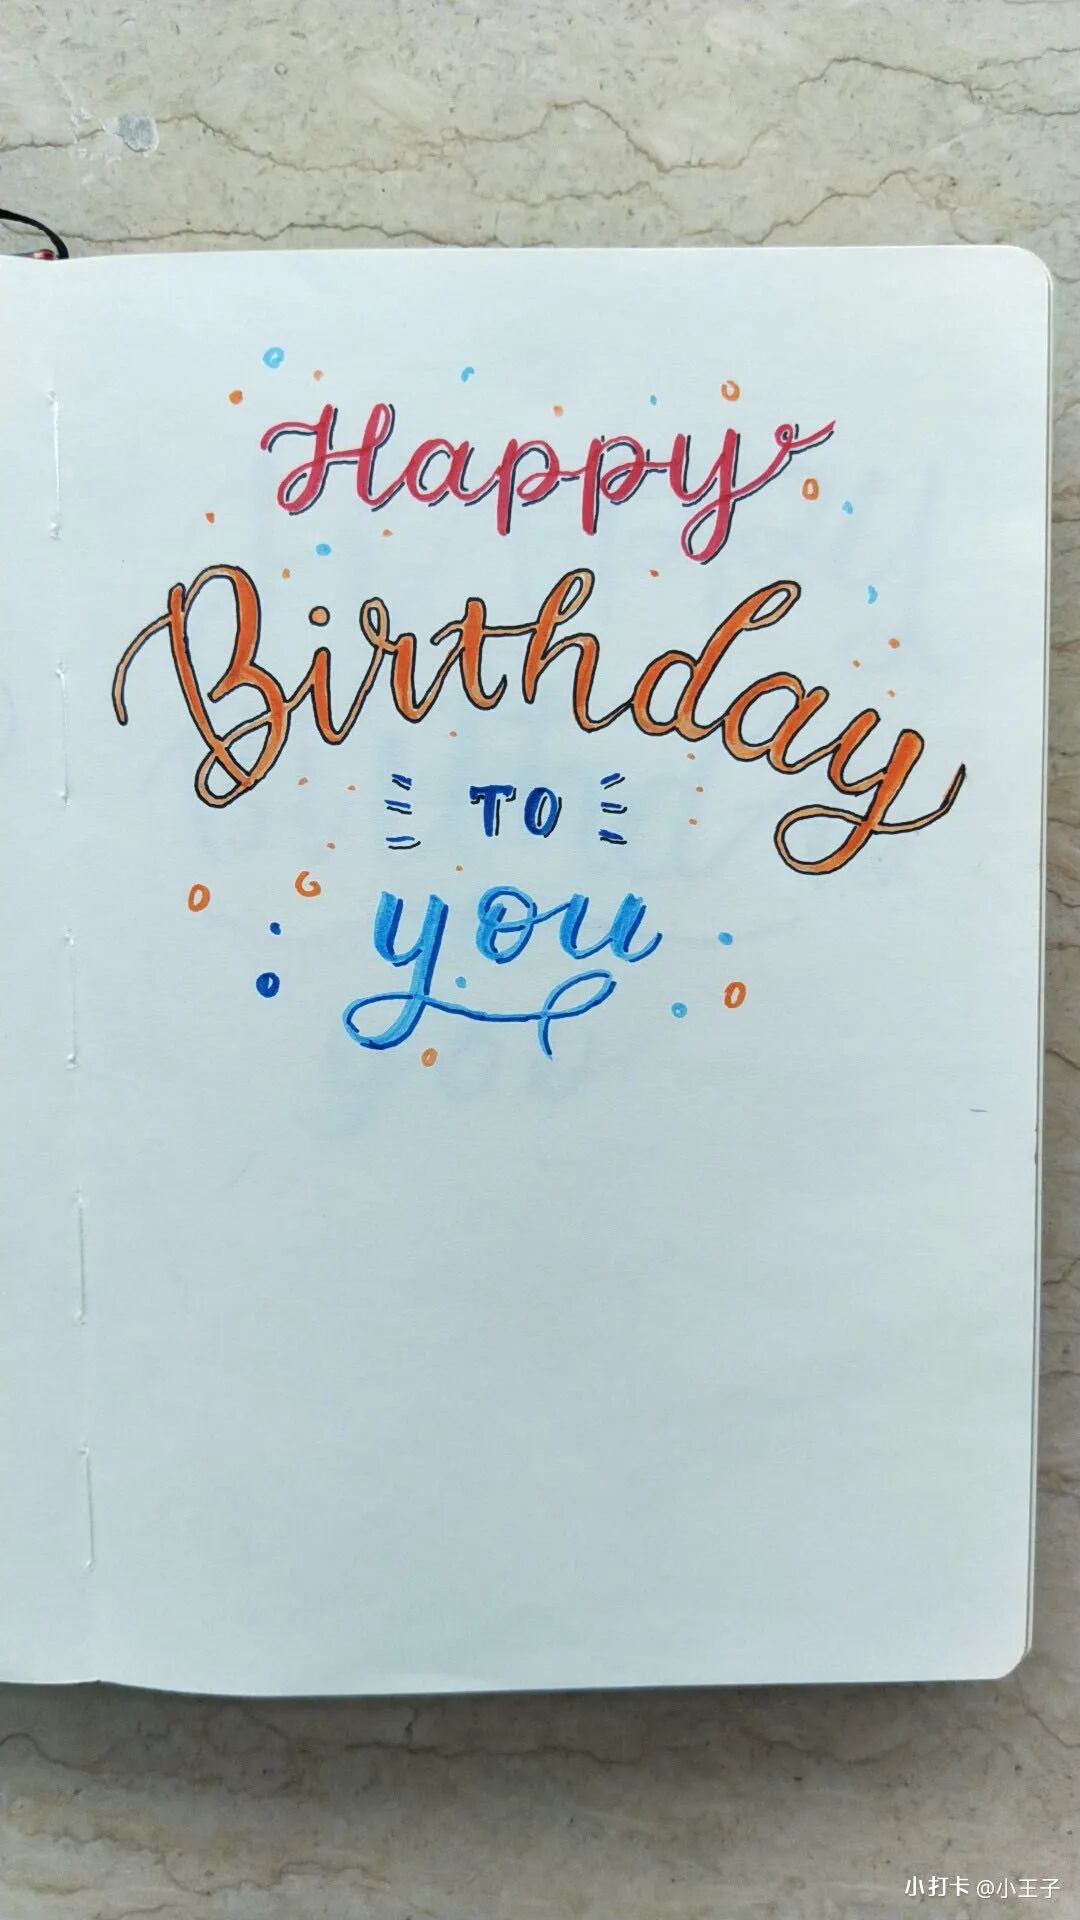 Happy
Birthday
TO
you
小打卡 @小王子